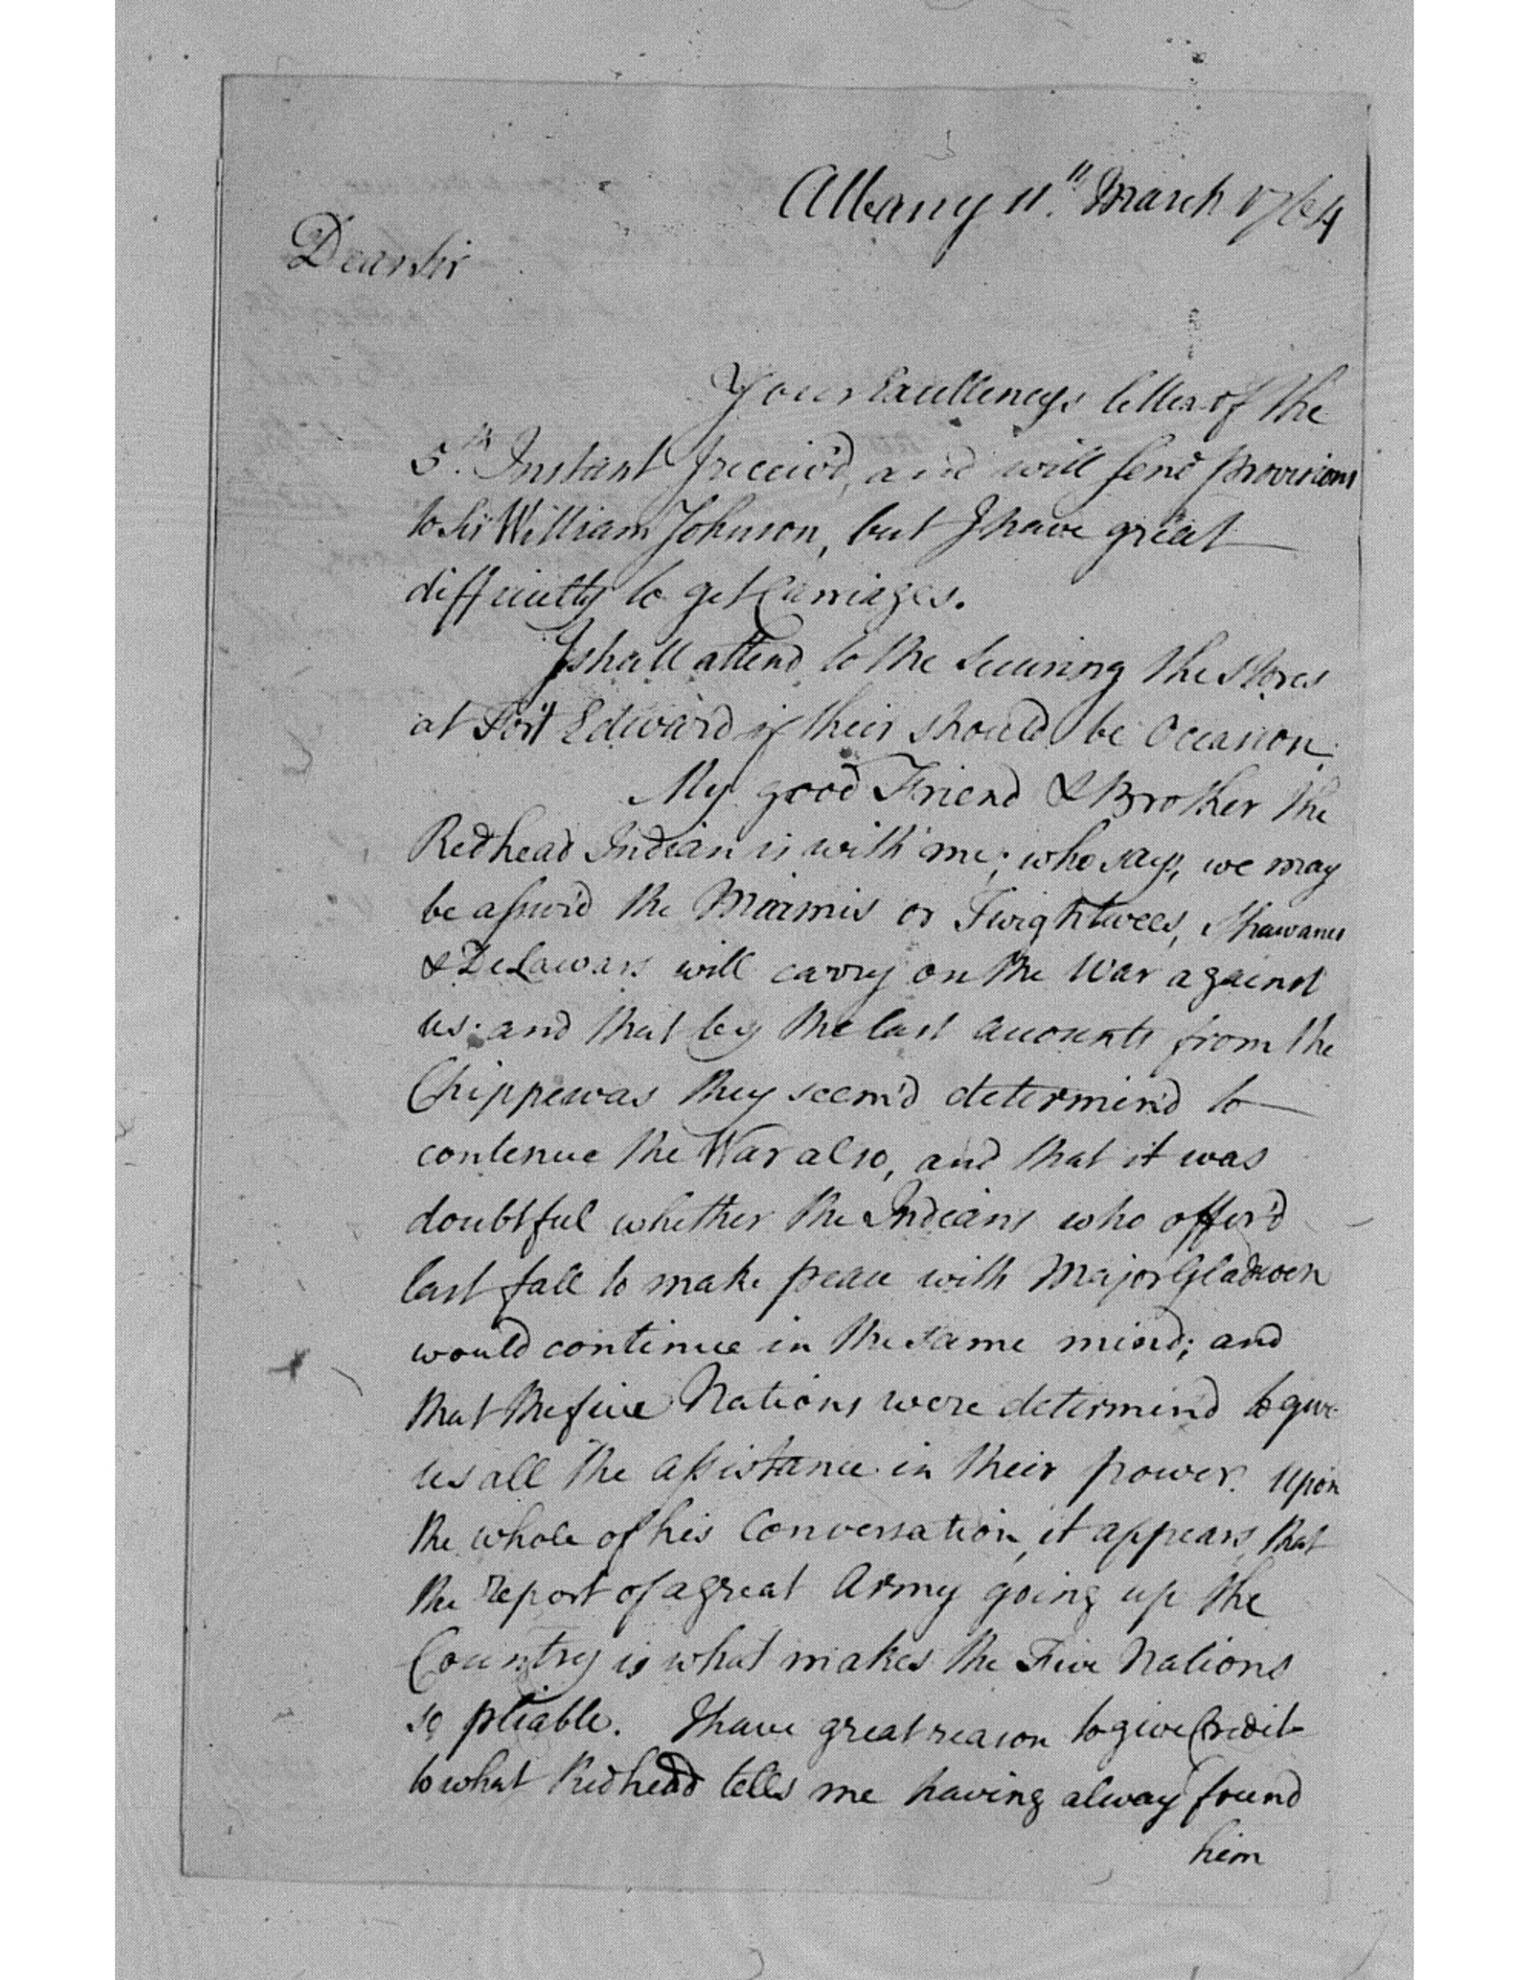 Albany 11th March 1764
Dear Sir
Your Excellencys letter of the
5th Instant I receiv'd, and will send provisions
to Sir William Johnson, but I have great
difficulty to get Carriages.
I shall attend to the Securing the Stores
at Fort Edward if their should be Occasion.
My good Friend & Brother the
Redhead Indian is with me; who says, we may
be assur'd the Miamis or Twightwees, Shawanes
& DeLawars will carry on the War against
us. and that by the last accounts from the
Chippewas they seem'd determin'd to
contenue the War also, and that it was
doubtful whether the Indians who offer'd
last fall to make peace with Major Gladwen
would continue in the same mind; and
that the five Nations were determin'd to give
us all the Assistance in their power. Upon
the whole of his Conversation, it appears that
the report of a great Army going up the
Country is what makes the Five Nations
so pliable. I have great reason to give Credit
to what Redhead tells me having alway found
him